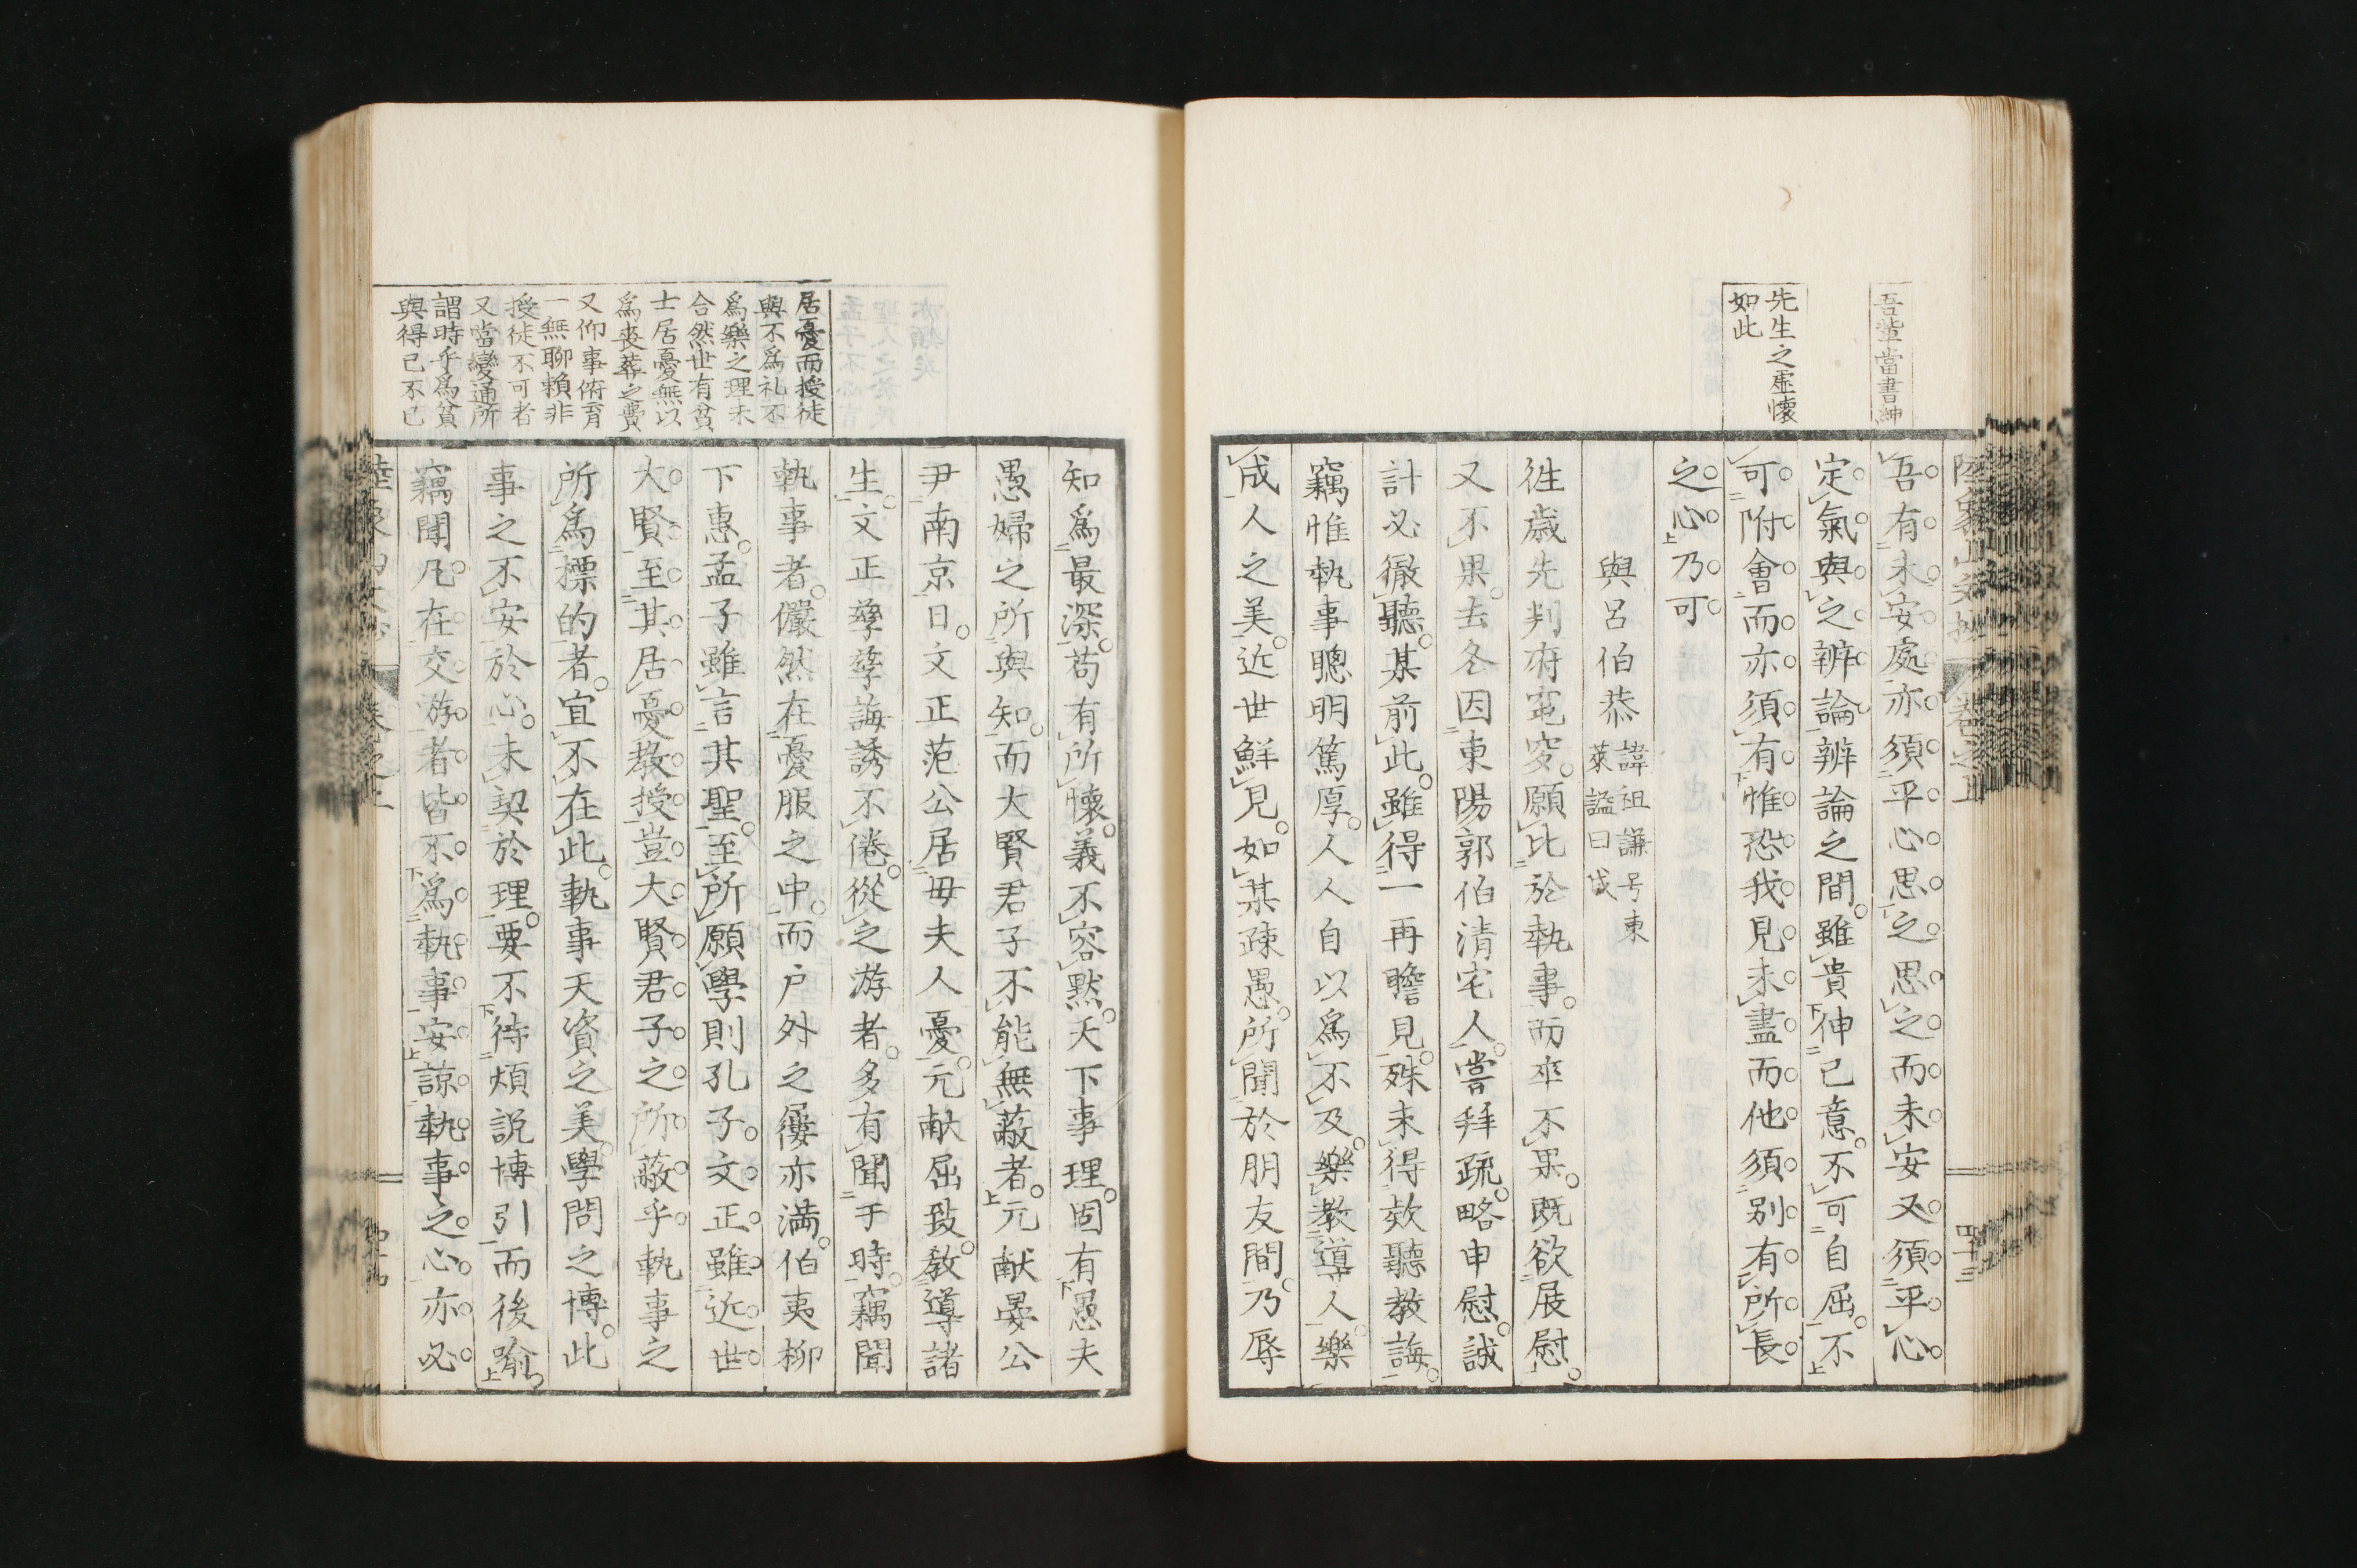 吾輩當書紳
先生之虛懷
如此
吾有未安處亦須平心思之思之而未安又須平心
定氣與之辨論辨論之間雖貴伸己意不可自屈不
可附會而亦須有惟恐我見未盡而他須別有所長
之心乃可
與呂伯恭
諱祖謙号東
萊謚曰成
徃歳先判府
又不果去冬因東陽郭伯清宅人嘗拜疏略申慰誠
計必徹聽某前此雖得一再瞻見殊未得欵聽教誨
竊惟執事聰明篤厚人人自以爲不及樂教導人樂
成人之美近世鮮見如某疎愚所聞於朋友間乃辱
居憂而授徒
與不爲礼不
爲樂之理未
合然世有貧
士居憂無以
爲喪葬之費
又仰事俯育
一無聊賴非
授徒不可者
又當變通所
謂時乎爲貧
與得已不已
知爲最深苟有所懐義不容默天下事理固有愚夫
愚婦之所與知而大賢君子不能無蔽者元献晏公
尹南京日文正范公居母夫人憂元献屈致教導諸
生文正孳孳誨誘不倦從之游者多有聞于時竊聞
執事者儼然在憂服之中而户外之屨亦満伯夷柳
下惠孟子雖言其聖至所願學則孔子文正雖近世
大賢至其居憂教授豈大賢君子之所蔽乎執事之
所爲標的者宜不在此執事天資之美學問之博此
事之不安於心未契於理要不待煩説博引而後喻
竊聞凡在交游者皆不爲執事安諒執事之心亦必